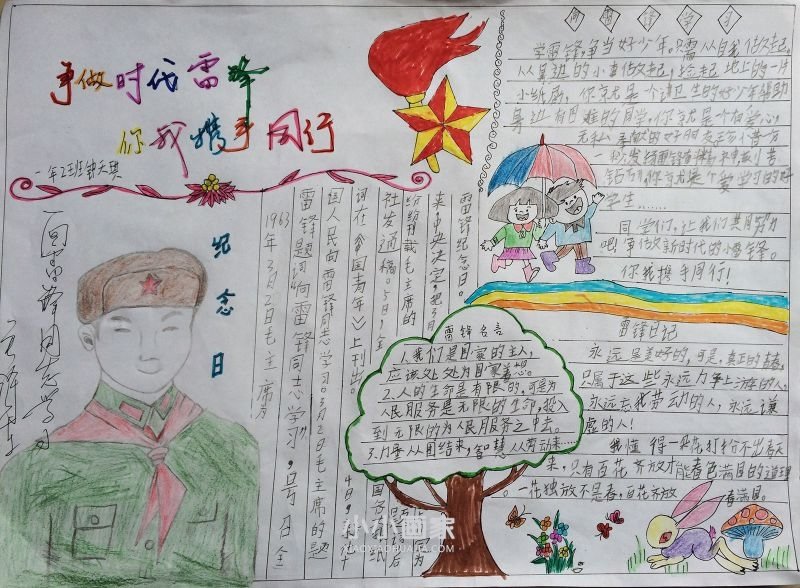 争做时代雷锋
你我携手同行
一年2班钟天琪
向雷锋同志学习
纪念日
1963年3月2日毛主席为
雷锋题词“向雷锋同志学习”,号召全
国人民向雷锋同志学习。3月2日毛主席的题
词在《中国青年》上刊出。
社发通稿。5日,全
纷纷转载毛主席的
来中央决定,把3月
雷锋纪念日。
雷锋名言
1.我们是国家的主人,
应该处处为国家着想。
2.人的生命是有限的,可是为
人民服务是无限的生命,投入
到无限的为人民服务之中去。
3.力量从团结来,智慧从劳动来…
向雷锋学习
学雷锋争当好少年。只需从自我做起。
从身边的小事做起,捡起地上的一片
小纸屑,你就是个讲卫生的好少年帮助
身边有困难的同学,你就是个有爱心,
无私奉献的好朋友
学生……
同学们,让我们共同努力
吧!争做新时代的小雷锋。
你我携手同行!
雷锋日记
永远是美好的,可是,真正的青春,
只属于这些永远力争上游的人,
永远忘我劳动的人,永远谦
虚的人!
我懂得一朵花打扮不出春天
来,只有百花齐放才能春色满园的道理
一花独放不是春,百花齐放
春满园。
小小画家
XIAOXIAOHUAJIA.COM